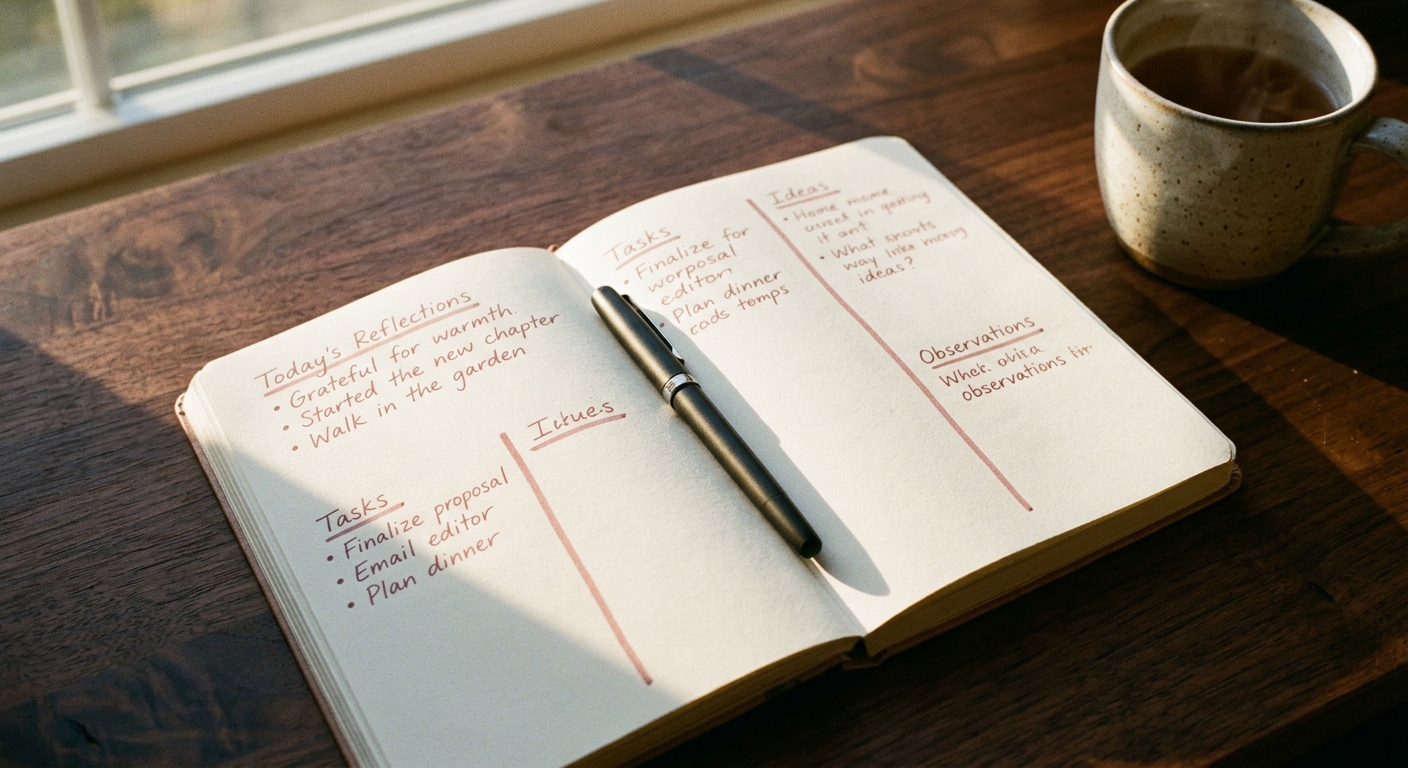 Today's Reflections
• Grateful for warmth.
• Started the new chapter
• Walk in the garden
Tasks
• Finalize proposal
• Email editor
• Plan dinner
Tasks
• Finalize for
worposal
editor
• Plan dinner
cads temps
Ideas
• Home
in
it ant
• What
way
ideas?
Observations
observations